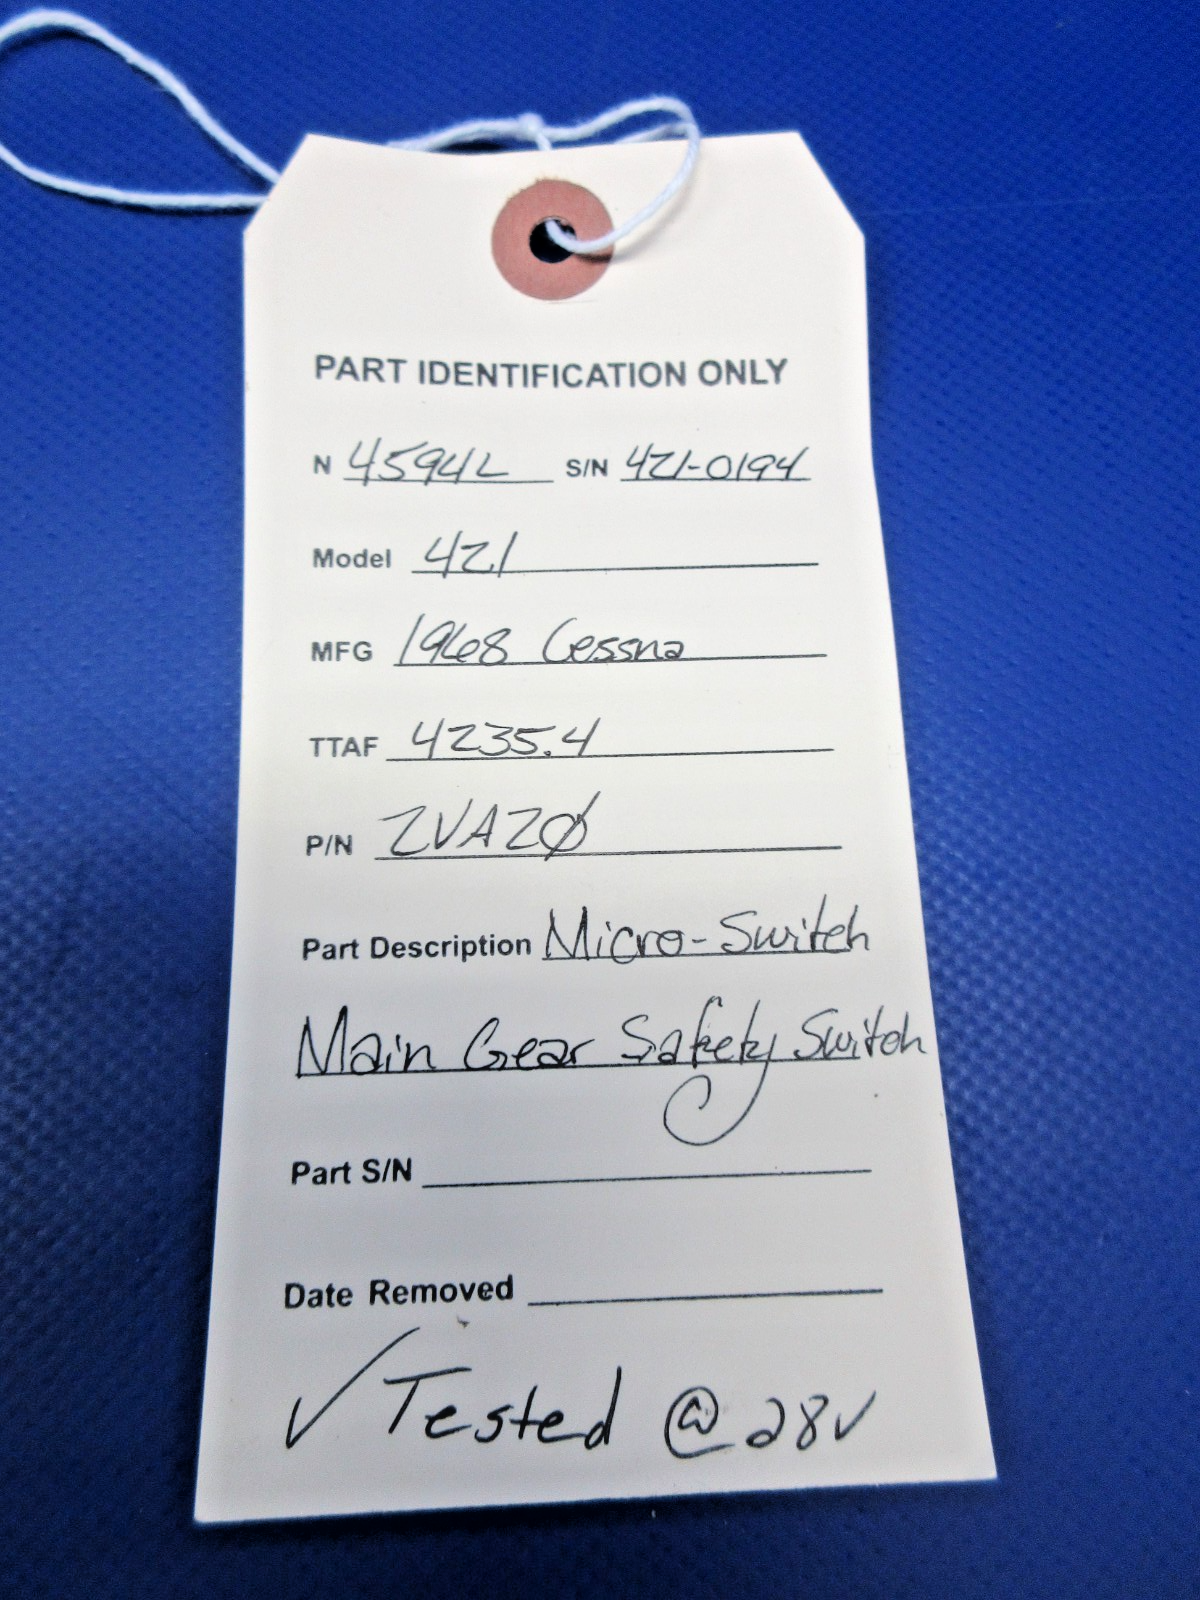 PART IDENTIFICATION ONLY
N 4594L S/N 421-0194
Model 421
MFG 1968 Cessna
TTAF 4235.4
P/N 2VA2Ø
Part Description Micro-Switch
Main Gear Safety Switch
Part S/N
Date Removed
✓ Tested @ 28V